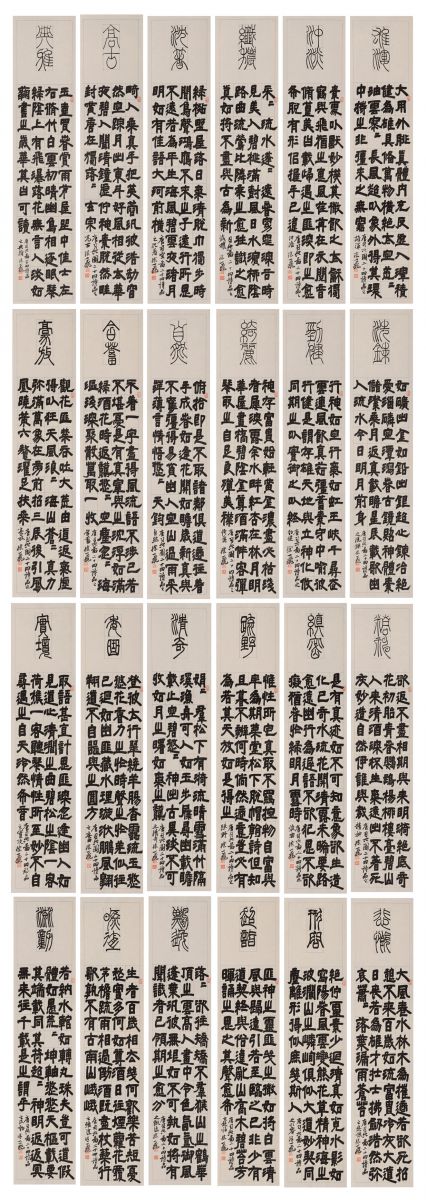 雄渾
大用外腓真體內充反虛入渾積
健為雄具備萬物橫絕太空荒荒
油雲寥寥長風超以象外得其環
中持之匪強來之無窮
沖淡
素處以默妙機其微飲之太和獨
鶴與飛猶之惠風荏苒在衣閱音
修篁美曰載歸遇之匪深即之愈
希脫有形似握手已違
纖穠
采采流水蓬蓬遠春窈窕深谷時
見美人碧桃滿樹風日水濱柳陰
路曲流鶯比鄰乘之愈往識之愈
真如將不盡與古為新
沈著
綠杉野屋落日氣清脫巾獨步時
聞鳥聲鴻雁不來之子遠行所思
不遠若為平生海風碧雲夜渚月
明如有佳語大河前橫
高古
畸人乘真手把芙蓉汎彼浩劫窅
然空蹤月出東斗好風相從太華
夜碧人聞清鐘虛佇神素脫然畦
封黃唐在獨落落玄宗
典雅
玉壺買春賞雨茅屋坐中佳士左
右修竹白雲初晴幽鳥相逐眠琴
綠陰上有飛瀑落花無言人淡如
菊書之歲華其曰可讀
洗鍊
如礦出金如鉛出銀超心鍊冶絕
愛緇磷空潭瀉春古鏡照神體素
儲潔乘月返真載瞻星辰載歌幽
人流水今日明月前身
勁健
行神如空行氣如虹巫峽千尋走
雲連風飲真茹強蓄素守中喻彼
行健是謂存雄天地與立神化攸
同期之以實御之以終
綺麗
神存富貴始輕黃金濃盡必枯淺
者屢深露餘水畔紅杏在林月明
華屋畫橋碧陰金尊酒滿伴客彈
琴取之自足良殫美襟
自然
俯拾即是不取諸鄰俱道適往著
手成春如逢花開如瞻歲新真與
不奪強得易貧幽人空山過雨采
蘋薄言情悟悠悠天鈞
含蓄
不著一字盡得風流語不涉己若
不堪憂是有真宰與之沉浮如滿
綠酒花時返秋悠悠空塵忽忽海
漚淺深聚散萬取一收
豪放
觀花匪禁吞吐大荒由道返氣處
得以狂天風浪浪海山蒼蒼真力
彌滿萬象在旁前招三辰後引鳳
凰曉策六鰲濯足扶桑
精神
欲返不盡相期與來明漪絕底奇
花初胎青春鸚鵡楊柳樓臺碧山
人來清酒深杯生氣遠出不著死
灰妙造自然伊誰與裁
縝密
是有真跡如不可知意象欲生造
化已奇水流花開清露未晞要路
愈遠幽行為遲語不欲犯思不欲
癡猶春於綠明月雪時
疏野
惟性所宅真取不羈控物自富與
率為期築室松下脫帽看詩但知
旦暮不辨何時倘然適意豈必有
為若其天放如是得之
清奇
娟娟群松下有漪流晴雪滿汀隔
溪漁舟可人如玉步屟尋幽載瞻
載止空碧悠悠神出古異淡不可
收如月之曙如氣之秋
委曲
登彼太行翠繞羊腸杳靄流玉悠
悠花香力之於時聲之於羌似往
已迴如幽匪藏水理漩洑鵬風翱
翔道不自器與之圓方
實境
取語甚直計思匪深忽逢幽人如
見道心清澗之曲碧松之陰一客
荷樵一客聽琴情性所至妙不自
尋遇之自天泠然希音
悲慨
大風卷水林木為摧適苦欲死招
憩不來百歲如流富貴冷灰大道
日喪若為雄才壯士拂劍浩然彌
哀蕭蕭落葉漏雨蒼苔
形容
絕佇靈素少迴清真如覓水影如
寫陽春風雲變態花草精神海之
波瀾山之嶙峋俱似大道妙契同
塵離形得似庶幾斯人
超詣
匪神之靈匪幾之微如將白雲清
風與歸遠引若至臨之已非少有
道契終與俗違亂山喬木碧苔芳
暉誦之思之其聲愈希
飄逸
落落欲往矯矯不群緱山之鶴華
頂之雲高人畫中令色氤氳御風
蓬葉汎彼無垠如不可執如將有
聞識者已領期之愈分
曠達
生者百歲相去幾何歡樂苦短憂
愁實多何如尊酒日往煙蘿花覆
茅檐疏雨相過倒酒既盡杖藜行
歌孰不有古南山峨峨
流動
若納水輨如轉丸珠夫豈可道假
體如愚荒荒坤軸悠悠天樞載要
其端載同其符超超神明返返冥
無來往千載是之謂乎